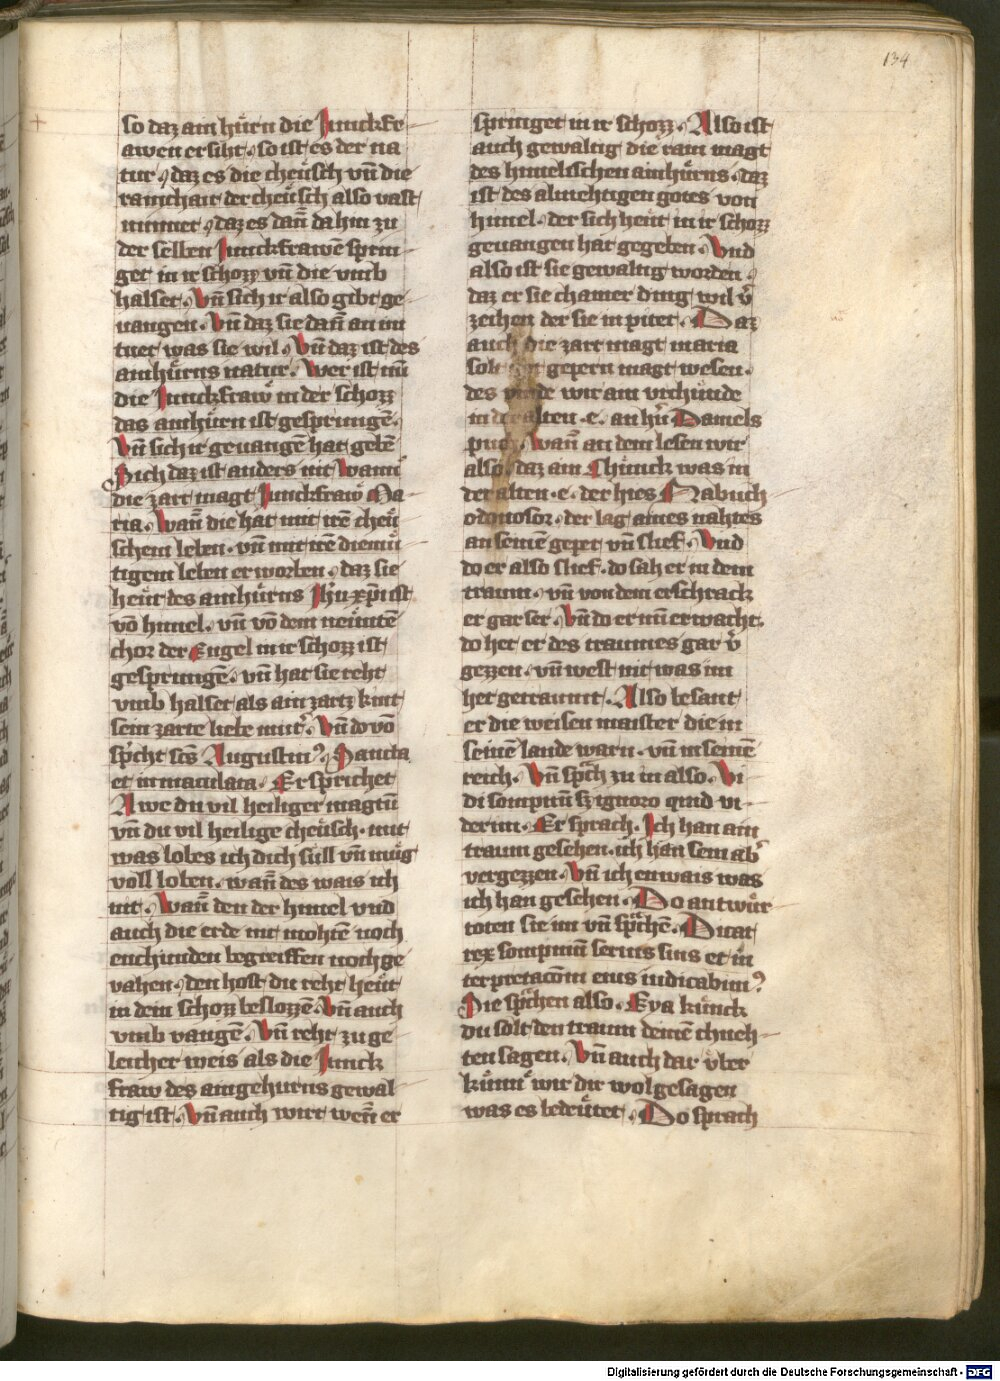 134
so daz ain hürn die Junckfr-
awen ersiht. so ist es der na
tur. daz es die cheüsch vn̄ die
rainchait der cheüsch also vast
nimet. daz es dan̄ da hin zu
der selben Junckfrawē sprin-
get in ir schozz vn̄ die vmb
halset. Vn̄ sich ir also gibt ge-
uangen. Vn̄ daz sie dan̄ an im
tuet was sie wil. Vn̄ daz ist des
ainhürns natur. Wer ist nu̅
die Junckfraw in der schozz
das ainhürn ist gesprungē.
Vn̄ sich ir geuangē hat gebē
Sich daz ist anders nit wann
die zart magt Junckfraw Ma-
ria. Wan̄ die hat mit irē cheü
schem leben. vn̄ mit irē diemü
tigem leben erworben. daz sie
heüt des ainhürns Jhūxp̄ist
vō himel. vn̄ vō dem neüntē
chor der Engel in ir schozz ist
gesprungē. vn̄ hat sie reht
vmb halset als ain zartz kint
sein zarte liebe mut̄. Vn̄ do vō
sp̄cht sc̄s Augustin⁹. Sancta
et inmaculata. Er sprichet
Awe du vil heiliger magtū
vn̄ du vil heilige cheüsch. mit
was lobes ich dich süll vn̄ müg
voll loben. wan̄ des wais ich
nit. Wan̄ den der himel vnd
auch die erde nit mohtē noch
enchunden begreiffen noch ge
vahen. den host du reht heüt
in dein schozz beslozzē. Vn̄ auch
vmb vangē. Vn̄ reht zu ge
leicher weis als die Junck
fraw des aingehurns gewal-
tig ist. Vn̄ auch wirt wen̄ er
springet in ir schozz. Also ist
auch gewaltig die rain magt
des himelischen ainhürns. daz
ist des almehtigen gotes von
himel. der sich heüt in ir schozz
geuangen hat gegeben. Vnd
also ist sie gewaltig worden.
daz er sie chainer ding wil v̄
zeihen der sie in pitet. Daz
auch die zart magt maria
solt gepern magt wesen.
des vinde wir ain vrchünde
in der alten .e. an h'n Daniels
puch. Wan̄ an dem lesen wir
also. daz ain Chünick was in
der alten .e. der hies Nabuch-
odonosor. der lag aines nahtes
an seinē gepet vn̄ slief. Vnd
do er also slief. do sah er in dem
traum. vn̄ von dem erschrack
er gar ser. Vn̄ do er nu̅ erwacht.
do het er des traumes gar v̄
gezzen. vn̄ west nit was im
het getraumt. Also besant
er die weisen maister die in
seinē lande warn. vn̄ in seinē
reich. Vn̄ sp̄ch zu in also. Vi-
di sompniū sz ignoro quid vi-
derim. Er sprach. Ich han ain
traum gesehen. ich han sein ab̄
vergezzen. Vn̄ ich enwais was
ich han gesehen. Do antwür-
toten sie im vn̄ sp̄chē. Dicat
rex sompniū seruis suis et in
terpretacōm eius indicabim⁹
Sie sp̄chen also. Eya künck
du solt den traum deinē chneh-
ten sagen. Vn̄ auch dar über
kün̄ wir dir wol gesagen
was es bedeütet. Do sprach
Digitalisierung gefördert durch die Deutsche Forschungsgemeinschaft - DFG